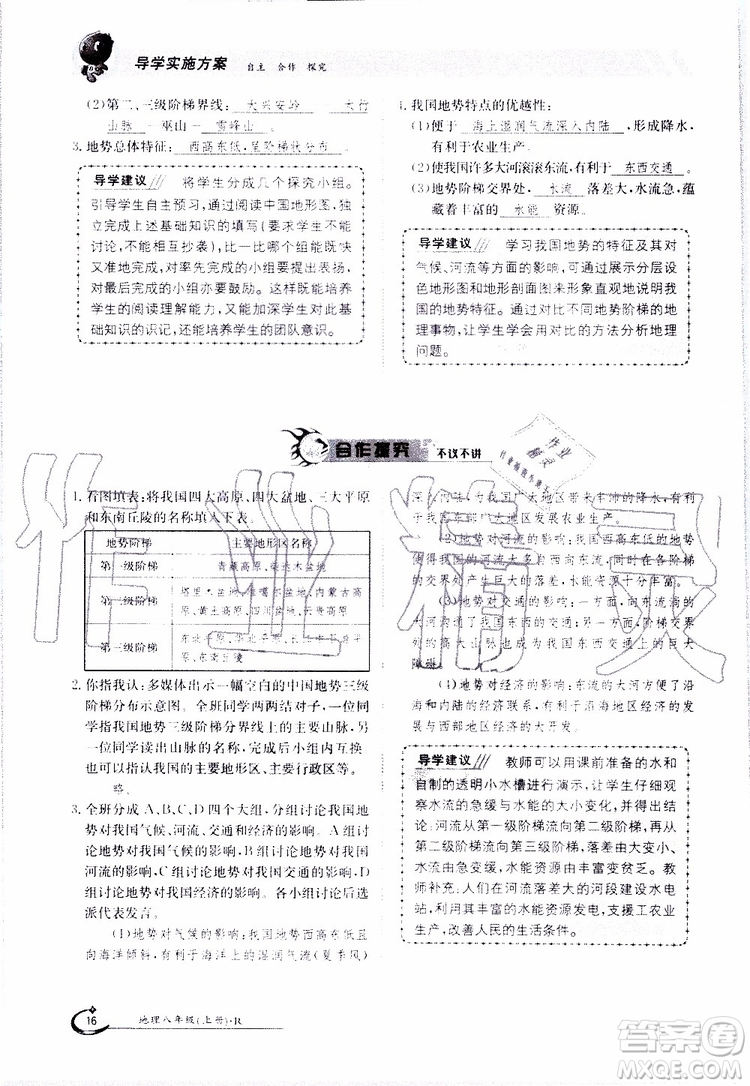 导学实施方案 自主 合作 探究
(2)第二、三级阶梯界线: 大兴安岭 — 太行
山脉 — 巫山 — 雪峰山
3. 地势总体特征: 西高东低,呈阶梯状分布
导学建议 将学生分成几个探究小组。
引导学生自主预习,通过阅读中国地形图,独
立完成上述基础知识的填写(要求学生不能
讨论,不能相互抄袭),比一比哪个组能既快
又准地完成,对率先完成的小组要进行表扬,
对最后完成的小组亦要鼓励。这样既能培养
学生的阅读理解能力,也能加深学生对本课
基础知识的识记,还能培养学生的团队意识。
4. 我国地势特点的优越性:
(1)使 海上湿润气流深入内陆 ,形成降水,
有利于农业生产。
(2)使我国许多大河滚滚东流,有利于 东西交通 。
(3)地势阶梯交界处, 水流 落差大,水流急,蕴
藏着丰富的 水能 资源。
导学建议 学习我国地势的特征及其对
气候、河流等方面的影响,可通过展示分层设
色地形图和地形剖面图来形象直观地说明我
国的地势特征。通过对比不同地势阶梯的地
理事物,让学生学会用对比的方法分析地理
问题。
合作探究 不议不讲
1. 看图填表:将我国四大高原、四大盆地、三大平原
和东南丘陵的名称填入下表。
地势阶梯 主要地形区名称
第一级阶梯 青藏高原、柴达木盆地
第二级阶梯 塔里木盆地、准噶尔盆地、内蒙古高
原、黄土高原、四川盆地、云贵高原
第三级阶梯 东北平原、华北平原、长江中下游平
原、东南丘陵
2. 你指我认:多媒体出示一幅空白的中国地势三级
阶梯分布示意图。全班同学两两结对,一位同
学指出中国地势三级阶梯分界线上的主要山脉,另
一位同学读出山脉的名称,完成后小组内互换完
成其他的主要地形区、主要行政区等。
略。
3. 全班分成A、B、C、D四个大组,分组讨论我国地
势对我国气候、河流、交通和经济的影响。A组讨
论地势对我国气候的影响,B组讨论地势对我国
河流的影响,C组讨论地势对我国交通的影响,D
组讨论地势对我国经济的影响。各小组讨论后选
派代表发言。
(1)地势对气候的影响:我国地势西高东低且
向海洋倾斜,有利于海洋上的湿润气流(夏季风)
深入内陆,给我国东部广大地区带来丰沛的降水,有
利于我国东部广大地区发展农业生产。
(2)地势对河流的影响:西高东低的地势特征
使我国的河流大多自西向东流,同时,在各阶梯
的交界处产生巨大的落差,水能资源丰富。
(3)地势对交通的影响:一方面,向东流的
大河沟通了我国东西交通;另一方面,阶梯交界
处的高大山脉也成为我国东西交通的巨大
障碍。
(4)地势对经济的影响:东流的大河方便了沿
海和内地的经济联系,有利于沿海地区的经济发展
与西部地区的经济开发。
导学建议 教师可以用课前准备的水和
自制的透明小水槽进行演示,让学生仔细观
察水流的急缓与水能的大小变化,并得出结
论:河流从第一级阶梯流向第二级阶梯,从第
二级阶梯流向第三级阶梯时,水流落差由小
变大,水流由急变缓,水能资源由丰富变贫乏。教
师补充:人们在河流落差大的河段建设水电
站,利用其丰富的水能资源发电,支援工农业
生产,改善人民的生活。
16 地理八年级(上册)·R
作业精灵
答案圈